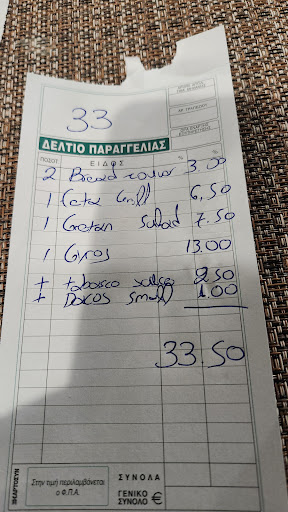 33
ΔΕΛΤΙΟ ΠΑΡΑΓΓΕΛΙΑΣ
ΠΟΣΟΤ. ΕΙΔΟΣ
2 Bread 3.00
1 Feta Grill 6,50
1 Cretan Salad 7.50
1 Gyros 13.00
+ tabasco 2.50
+ Dakos small 1.00
33.50
Στην τιμή περιλαμβάνεται
ο Φ.Π.Α.
ΣΥΝΟΛΑ
ΓΕΝΙΚΟ
ΣΥΝΟΛΟ €